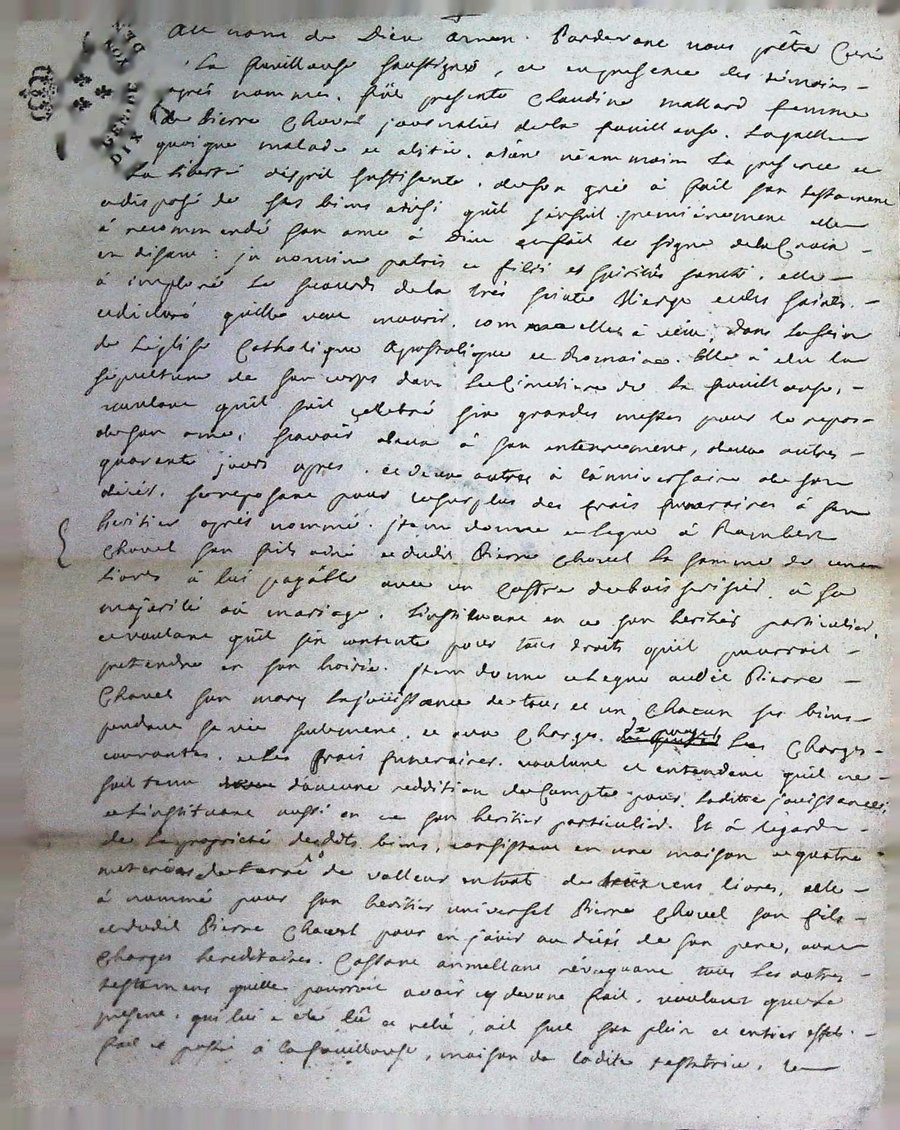 au nom de Dieu amen. Pardevant nous prêtre Curé
La fouillouse soussigné, et en presence des témoins
après nommés. fût presente Claudine mallard femme
de Pierre Chovel journalier de la fouillouse. Laquelle
quoique malade et alitée. néanmoin La presence et
La liberté d'esprit suffisante. de son gré à fait son testament
et disposé de ses biens ainsi qu'il s'ensuit. premièrement elle
à recommendé son ame à Dieu en fait le signe de la Croix
en disant: in nomine patris et filii et spiritûs sancti. elle
à imploré Le secours de la très sainte Vierge et des saints.
et déclaré qu'elle veut mourir. comme elle à vécu, dans Le sein
de L'église Catholique apostolique et Romaine. Elle à élu la
sépulture de son corps dans Le Cimetiere de La fouillouse,
voulant qu'il soit célébré six grandes messes pour le repos
de son ame, sçavoir deux à son enterrement, deux autres
quarente jours après. et deux autres à l'anniversaire de son
décès. se reposant pour le surplus des frais funeraires à son
heritier après nommé. item donne et legue à Rambert
Chovel son fils ainé et dudit Pierre Chovel La somme de cent
livres à lui payable avec un Coffre de bois serisier, à sa
majorité ou mariage. L'instituant en ce son heritier particulier
et voulant qu'il s'en contente pour tous droits qu'il pourrait
pretendre en son hoirie. item donne et legue audit Pierre
Chovel son mary La jouissance de tous et un chacun ses biens
pendant sa vie seulement, et aux Charges. de payer Les Charges
courantes. et Les frais funeraires. voulant et entendant qu'il ne
soit tenu d'aucune reddition de Compte pour Laditte jouissance
et L'instituant aussi en ce son heritier particulier. Et à l'égard
de La proprieté desdits biens, consistant en une maison et quatre
de terre de valleur en tout de cens livres, elle
à nommé pour son heritier universel Pierre Chovel son fils
et dudit Pierre Chovel pour en jouir au décès de son pere, aux
Charges hereditaires. Cassant annullant révoquant tous Les autres
testamens qu'elle pourrait avoir cy devant fait. voulant que le
présent, qui lui a été lû et relû, ait son plein et entier effet.
fait et passé à la fouillouse, maison de ladite testatrice, le
GEN DE
DIX